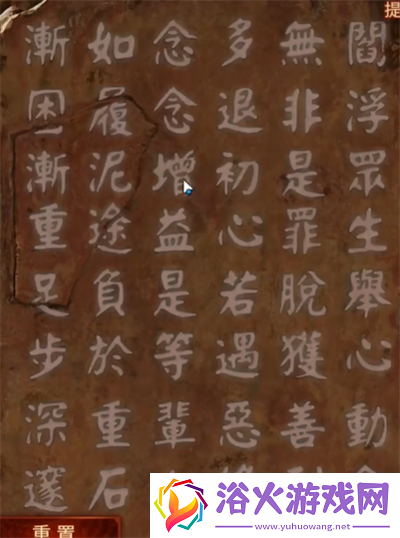 提
閻浮眾生舉心動
無非是罪脫獲善
多退初心若遇惡
念念增益是等輩
如履泥途負於重石
漸困漸重足步深邃
重置
浴火游戏网
www.yuhuowang.net